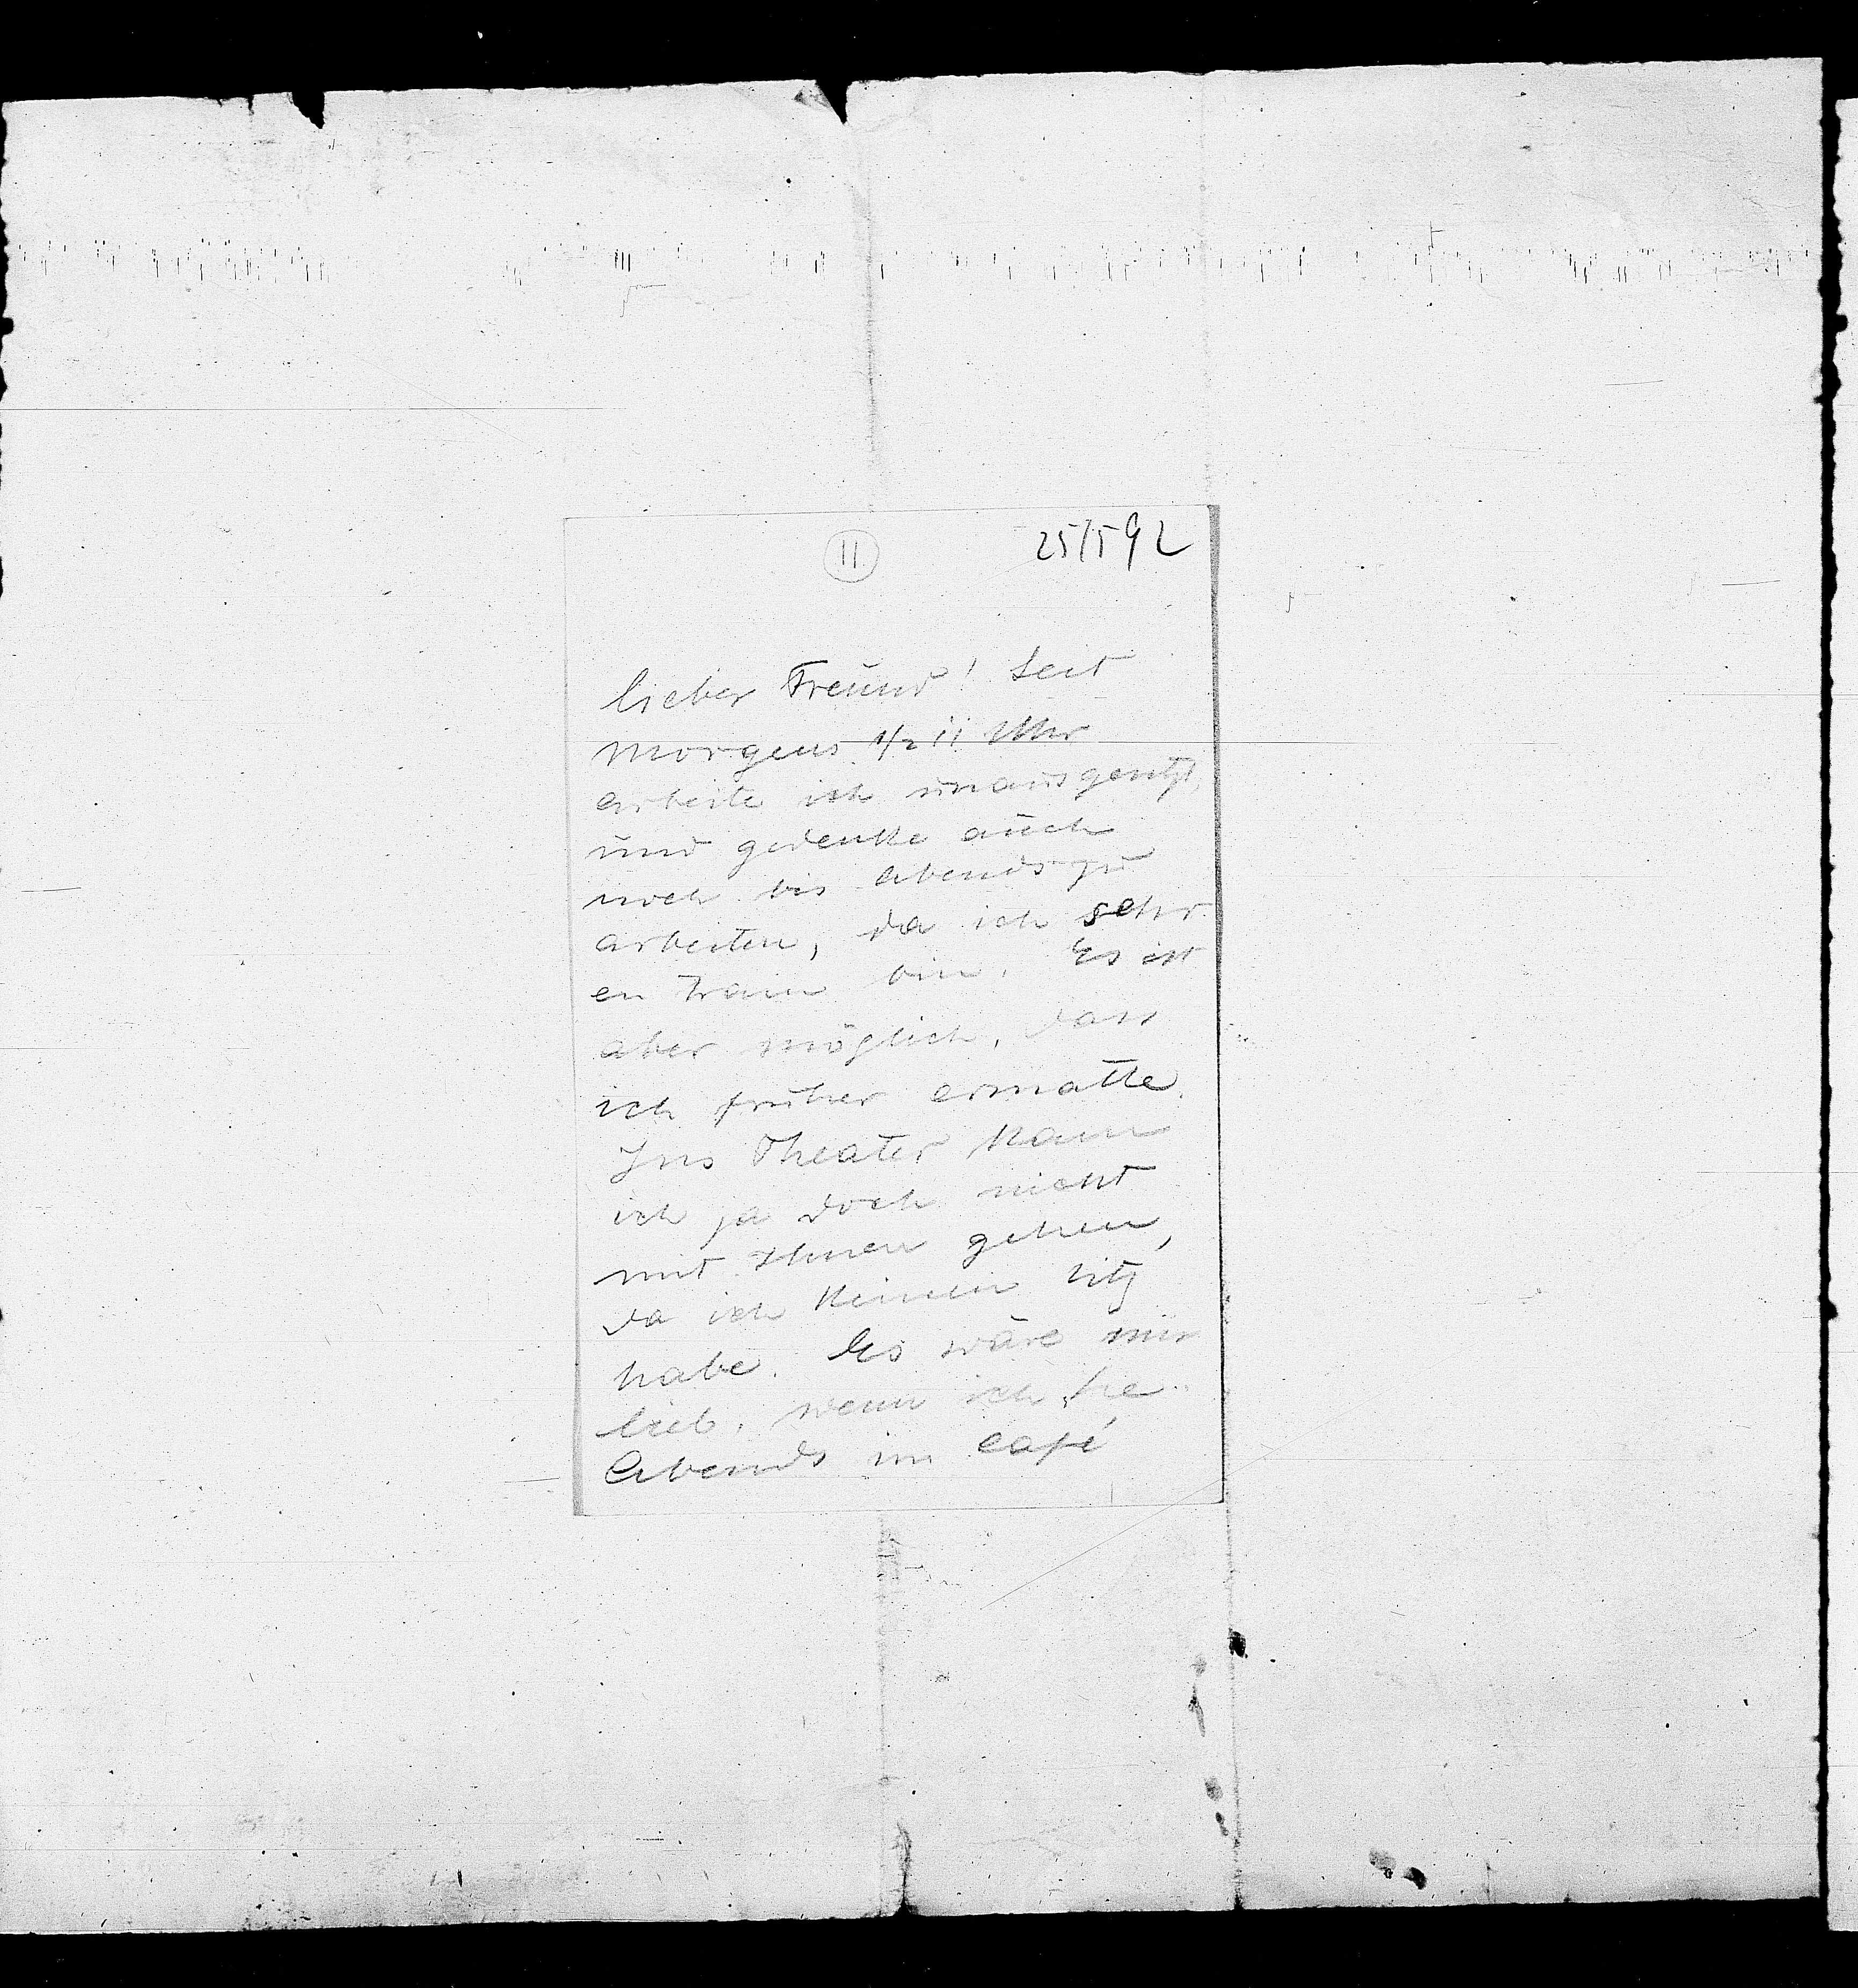 11.
25/5 92
lieber Freund! Seit
morgens 1/2 11 Uhr
arbeite ich unausgesetzt,
und gedenke auch
noch bis abends zu
arbeiten, da ich sehr
en train bin. Es ist
aber möglich, dass
ich früher ermatte.
Ins Theater kann
ich ja doch nicht
mit Ihnen gehen,
da ich keinen Sitz
habe. Es wäre mir
lieb, wenn ich Sie
Abends im Café